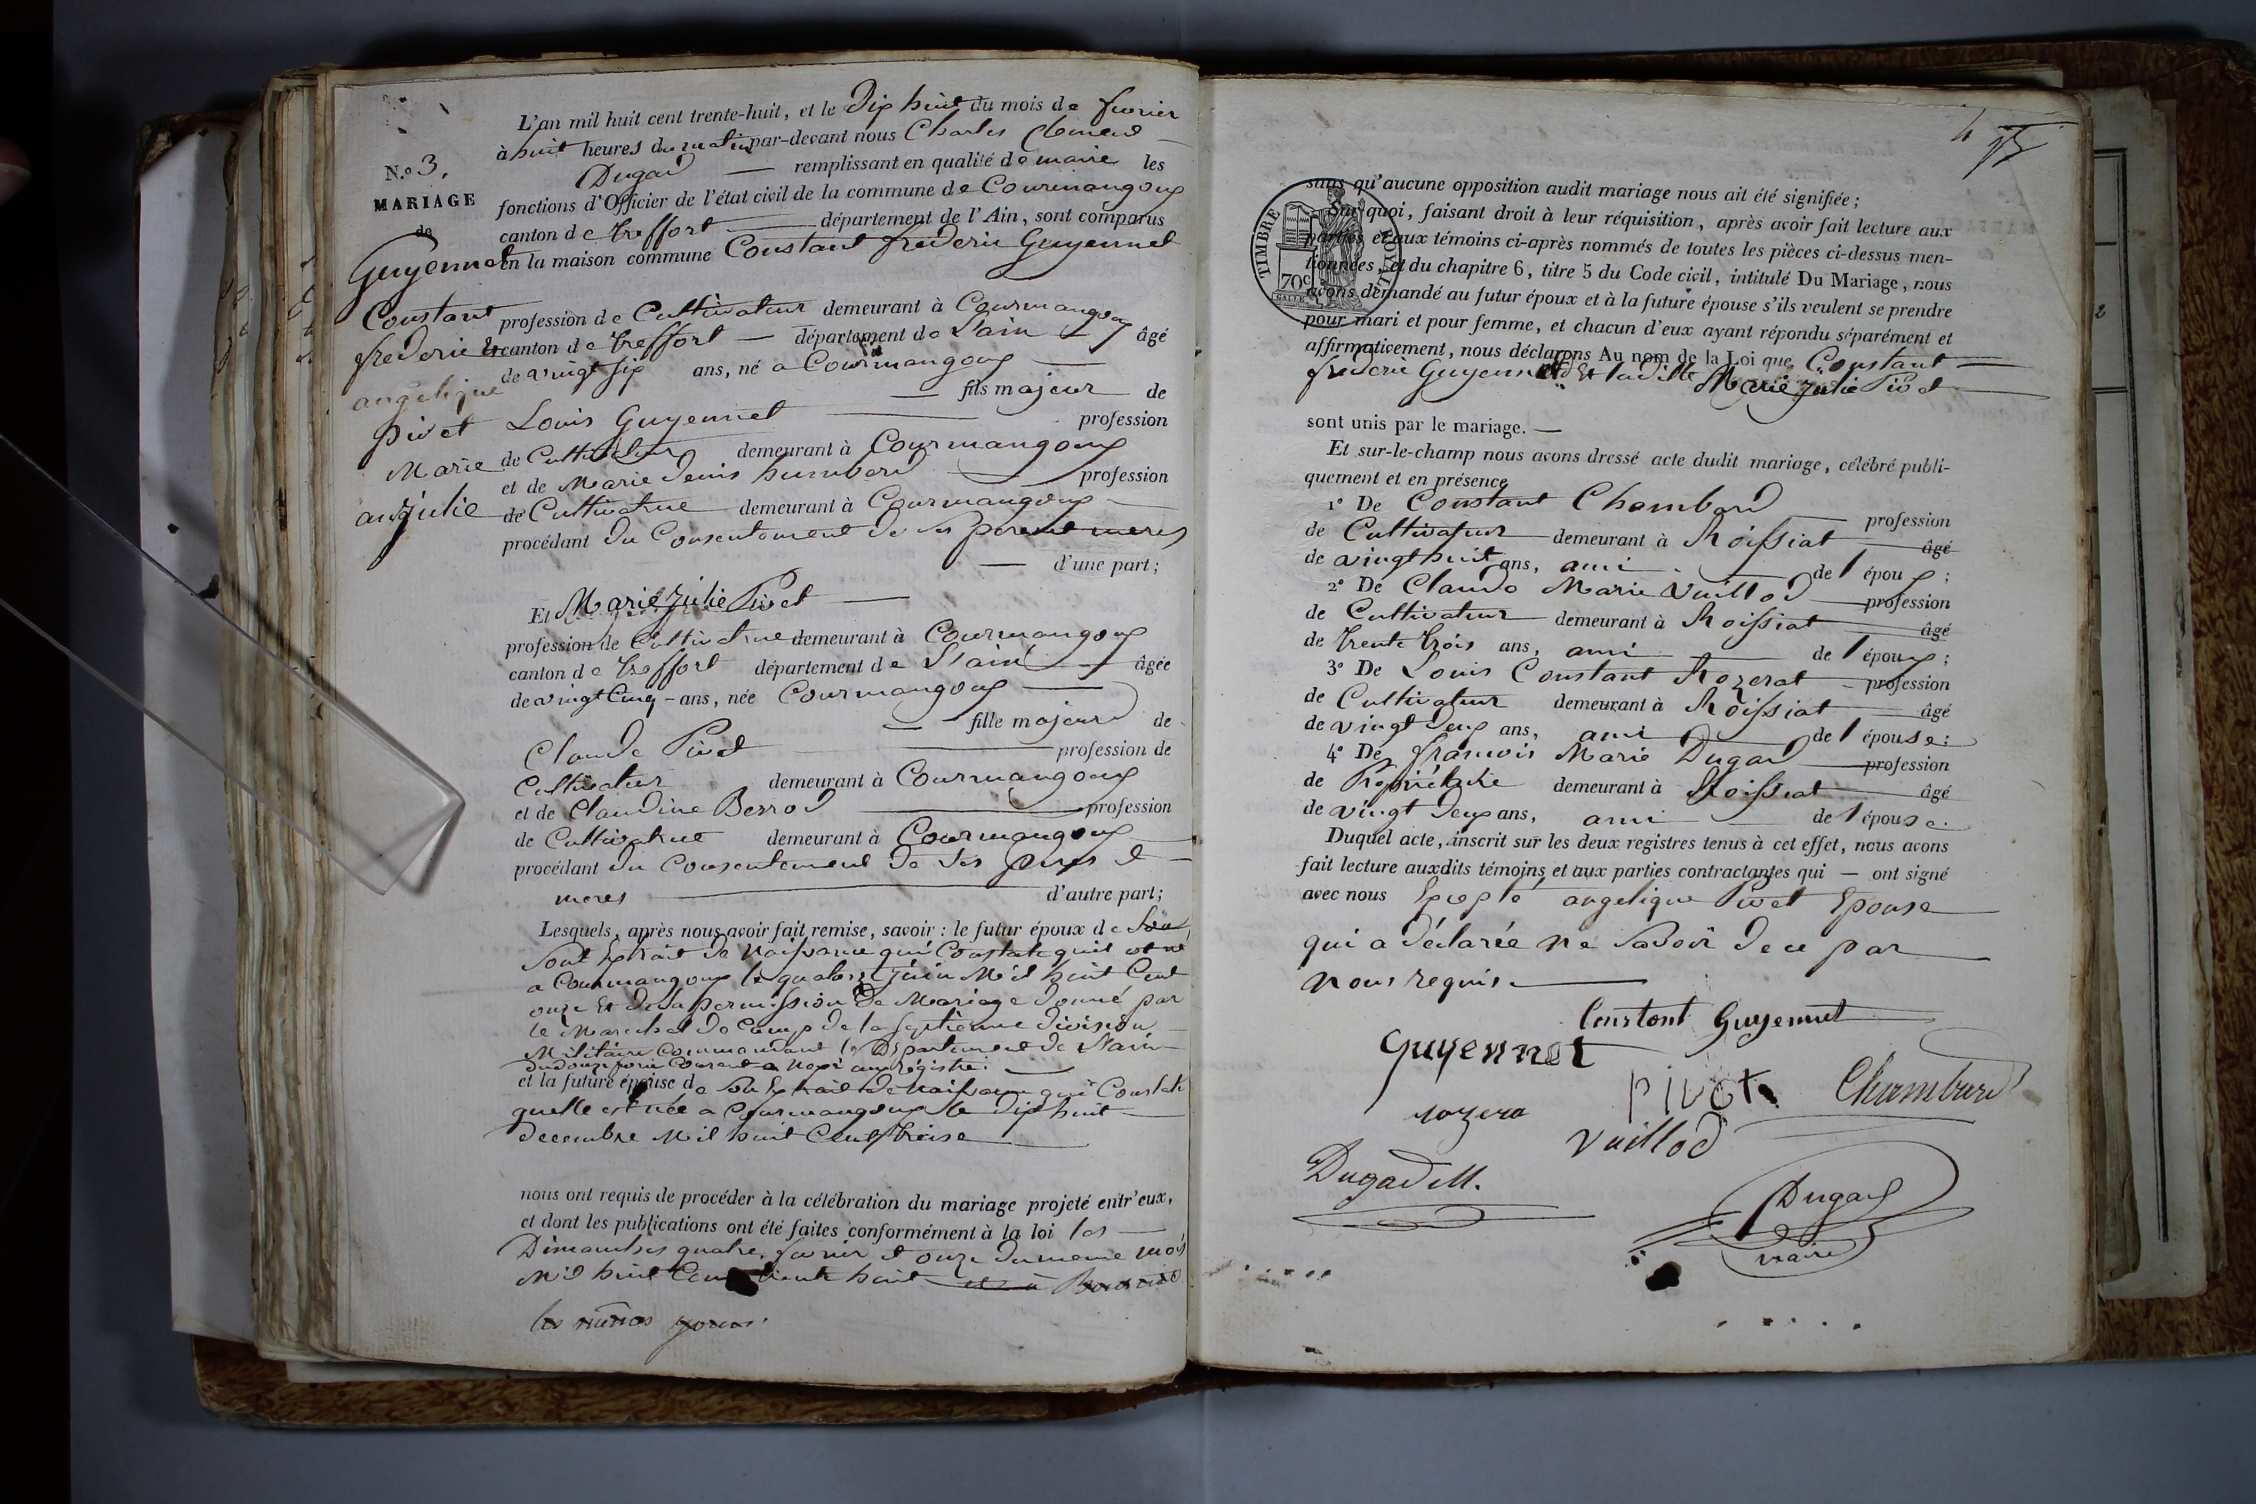 L'an mil huit cent trente-huit, et le Dix huit du mois de fevrier
à huit heures du matin par-devant nous Charles Clement
Dugad remplissant en qualité de maire les
N.o 3.
MARIAGE
de
Guyennet
Constant
frederic Et
angelique
pivet
Marie
julie
fonctions d'Officier de l'état civil de la commune de Courmangoux
canton de treffort département de l'Ain, sont comparus
en la maison commune Constant frederic Guyennet
profession de Cultivateur demeurant à Courmangoux
canton de treffort département de L'ain âgé
de vingt six ans, né a Courmangoux
fils majeur de
Louis Guyennet profession
de Cultivateur demeurant à Courmangoux
et de Marie Denis humbert profession
de Cultivatrice demeurant à Courmangoux
procédant du Consentement de ses meres
d'une part;
Et Marie julie Pivet
profession de Cultivatrice demeurant à Courmangoux
canton de treffort département de L'ain âgée
de vingt Cinq ans, née Courmangoux
fille majeure de
Claude Pivet profession de
Cultivateur demeurant à Courmangoux
et de Claudine Berrod profession
de Cultivatrice demeurant à Courmangoux
procédant du Consentement de ses peres et
meres d'autre part;
Lesquels, après nous avoir fait remise, savoir : le futur époux de Son
Extrait de Naissance qui Constate quil est né
a Courmangoux le quatorze juin Mil huit Cent
onze Et de la permission De Mariage Donné par
le Marechal De Camp de la Septieme Division
Militaire Commandant le Département de L'ain
et la future épouse de Son Extrait de Naissance qui Constate
quelle est née a Courmangoux le Dix huit
decembre Mil huit Cent treise
nous ont requis de procéder à la célébration du mariage projeté entr'eux,
et dont les publications ont été faites conformément à la loi les
Dimanches quatre fevrier et onze du meme mois
Mil huit Cent trente huit
4
sans qu'aucune opposition audit mariage nous ait été signifiée;
TIMBRE ROYAL
70c
Sur quoi, faisant droit à leur réquisition, après avoir fait lecture aux
parties et aux témoins ci-après nommés de toutes les pièces ci-dessus men-
tionnées, et du chapitre 6, titre 5 du Code civil, intitulé Du Mariage, nous
avons demandé au futur époux et à la future épouse s'ils veulent se prendre
pour mari et pour femme, et chacun d'eux ayant répondu séparément et
affirmativement, nous déclarons Au nom de la Loi que Constant
frederic Guyennet Et ladille Marie julie Pivet
sont unis par le mariage.
Et sur-le-champ nous avons dressé acte dudit mariage, célébré publi-
quement et en présence
1° De Constant Chambard profession
de Cultivateur demeurant à Roissiat âgé
de vingt huit ans, ami de l'époux;
2° De Claude Marie Vuillod profession
de Cultivateur demeurant à Roissiat âgé
de trente trois ans, ami de l'époux;
3° De Louis Constant Rozerat profession
de Cultivateur demeurant à Roissiat âgé
de vingt deux ans, ami de l'épouse:
4° De francois Marie Dugad profession
de Propriétaire demeurant à Roissiat âgé
de vingt deux ans, ami de l'épouse.
Duquel acte, inscrit sur les deux registres tenus à cet effet, nous avons
fait lecture auxdits témoins et aux parties contractantes qui ont signé
avec nous Excepté angelique Pivet Epouse
qui a déclarée ne Savoir de ce par
nous requis.
Constant Guyennet
Guyennet
pivet
Chambard
rozera
vuillod
Dugad M.
Dugad
maire